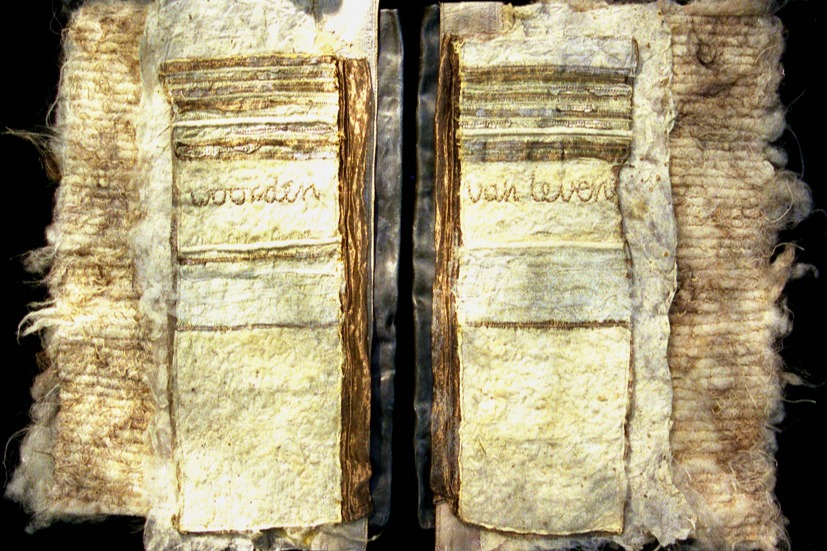 woorden van leven